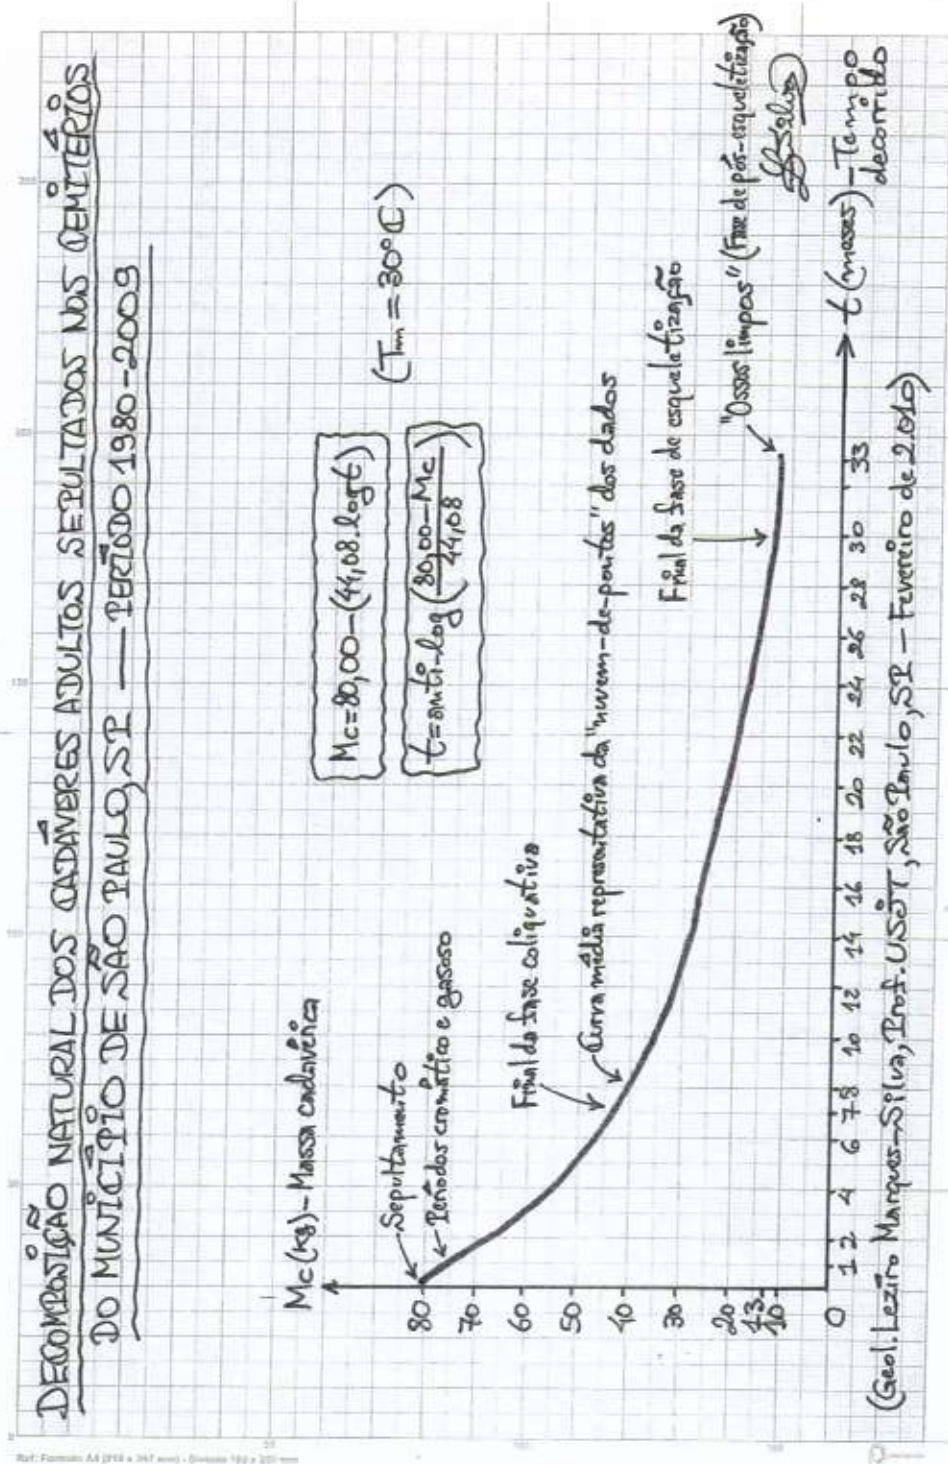 DECOMPOSIÇÃO NATURAL DOS CADÁVERES ADULTOS SEPULTADOS NOS CEMITÉRIOS
DO MUNICÍPIO DE SÃO PAULO, SP — PERÍODO 1980-2009
Mc (kg) - Massa cadavérica
Mc=80,00-(44,08.logt)
t=anti-log(80,00-Mc/44,08)
(Tm = 30°C)
Sepultamento
Períodos cromático e gasoso
Final da fase coliquativa
Curva média representativa da "nuvem-de-pontos" dos dados
Final da fase de esqueletização
"Ossos limpos" (Fase de pós-esqueletização)
80
70
60
50
40
30
20
13
10
0
1 2 4 6 7 8 10 12 14 16 18 20 22 24 26 28 30 33
t (meses) - Tempo
decorrido
(Geol. Leziro Marques-Silva, Prof. USJT, São Paulo, SP - Fevereiro de 2.010)
50
150
200